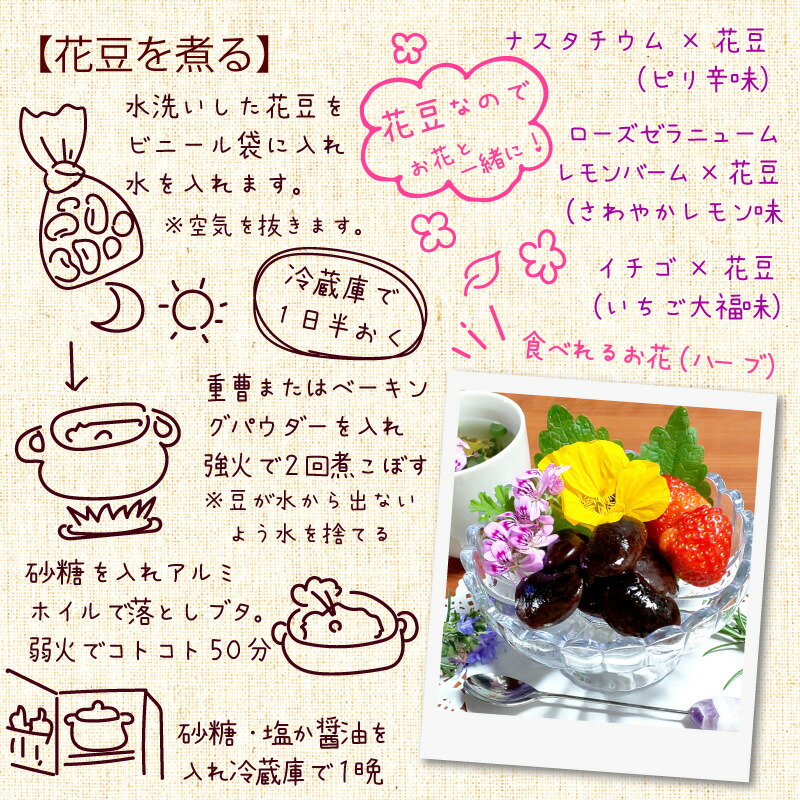 【花豆を煮る】
水洗いした花豆を
ビニール袋に入れ
水を入れます。
※空気を抜きます。
冷蔵庫で
1日半おく
重曹またはベーキン
グパウダーを入れ
強火で2回煮こぼす
※豆が水から出ない
よう水を捨てる
砂糖を入れアルミ
ホイルで落としブタ。
弱火でコトコト50分
砂糖・塩か醤油を
入れ冷蔵庫で1晩
花豆なので
お花と
一緒に!
ナスタチウム×花豆
(ピリ辛味)
ローズゼラニューム
レモンバーム×花豆
(さわやかレモン味
イチゴ×花豆
(いちご大福味)
食べれるお花(ハーブ)